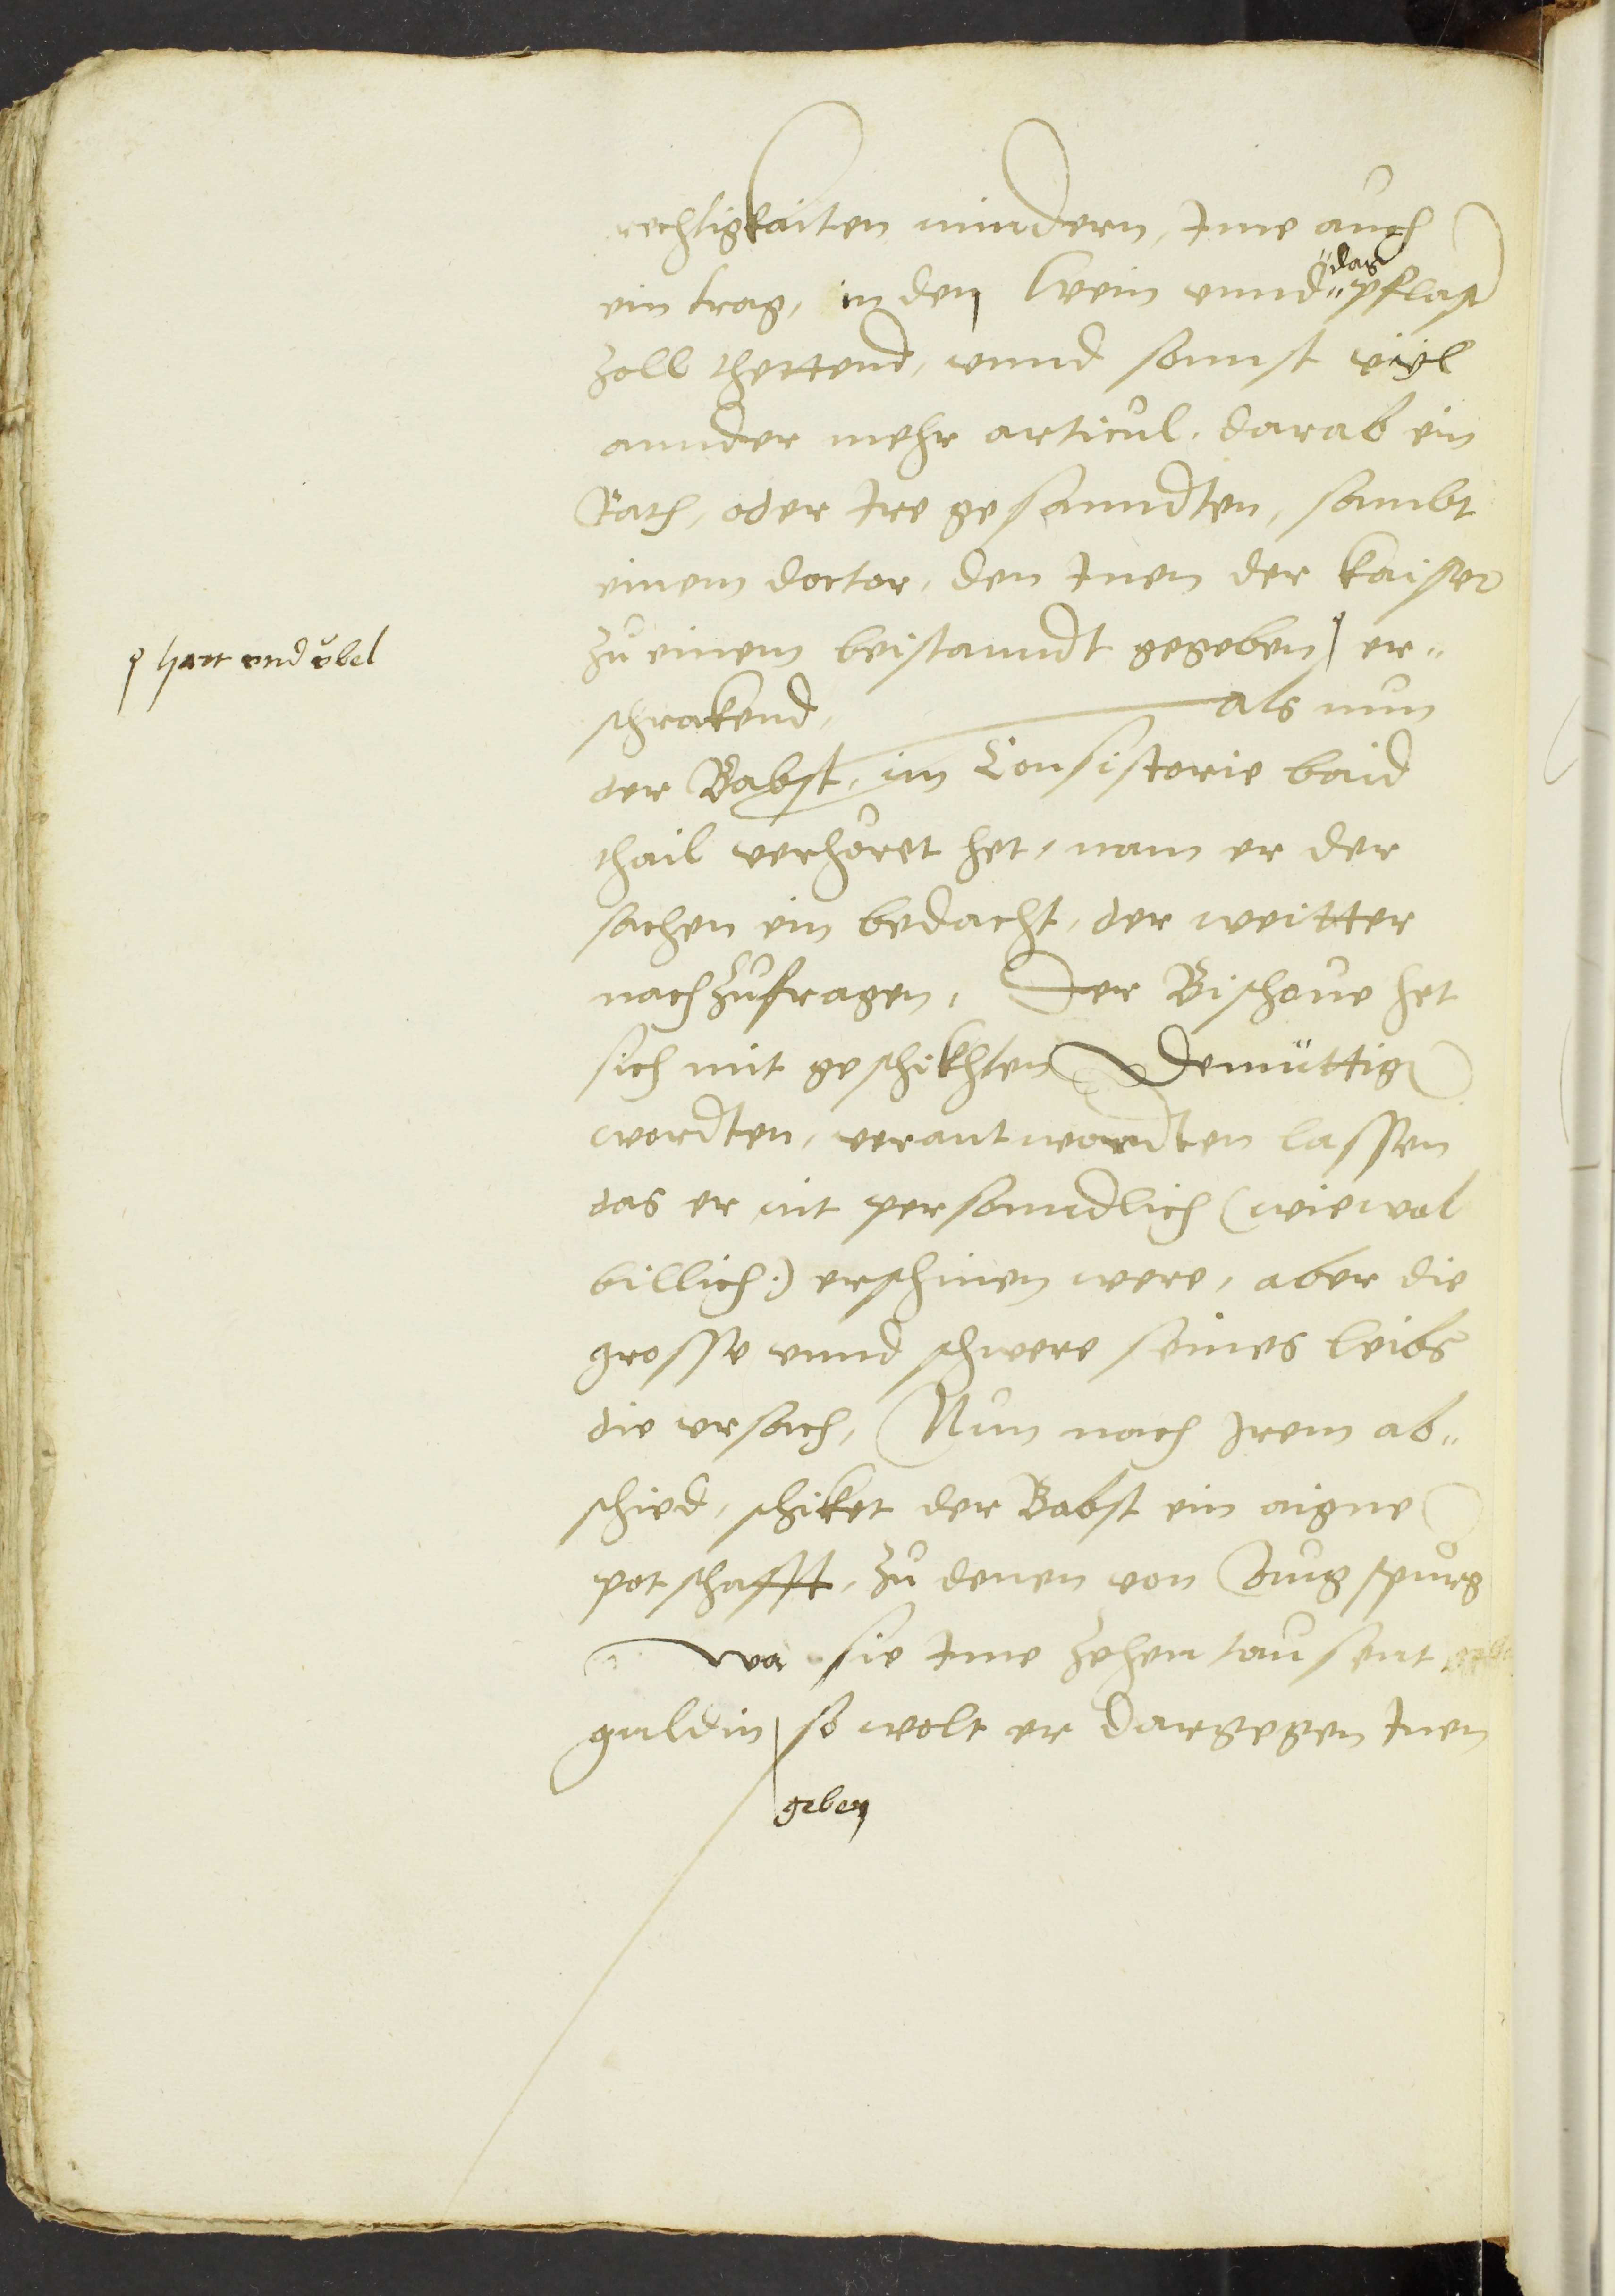 rechtigkaiten mindern, Jme auch
ein trag, in den wein vnnd das pflast
zoll thettend, vnnd sonnst viel
annder mehr articul, darab ein
Rath, oder Jre gesanndten, sambt
einem doctor, den Jnen der kaiser
zu einem beistanndt gegeben er„
hart vnd vbel
schrakend, als nun
der Babst, im Consistorie baid
thail verhoret het, nam er der
sachen ein bedacht, der weitter
nachzufragen, Der Bischoue het
sich mit geschikhten Demüttig
wordten, verantwordten lassen
das er nit personndlich (wiewol
billich:) erschinen were, aber die
grosse vnnd schwere seines leibs
die vrsach, Nun nach Jrem ab„
schied, schiket der Babst ein aigne
potschafft, zu denen von Augspurg
wa sie Jme zehen tausent
guldin so wolt er dargegen Jnen
geben